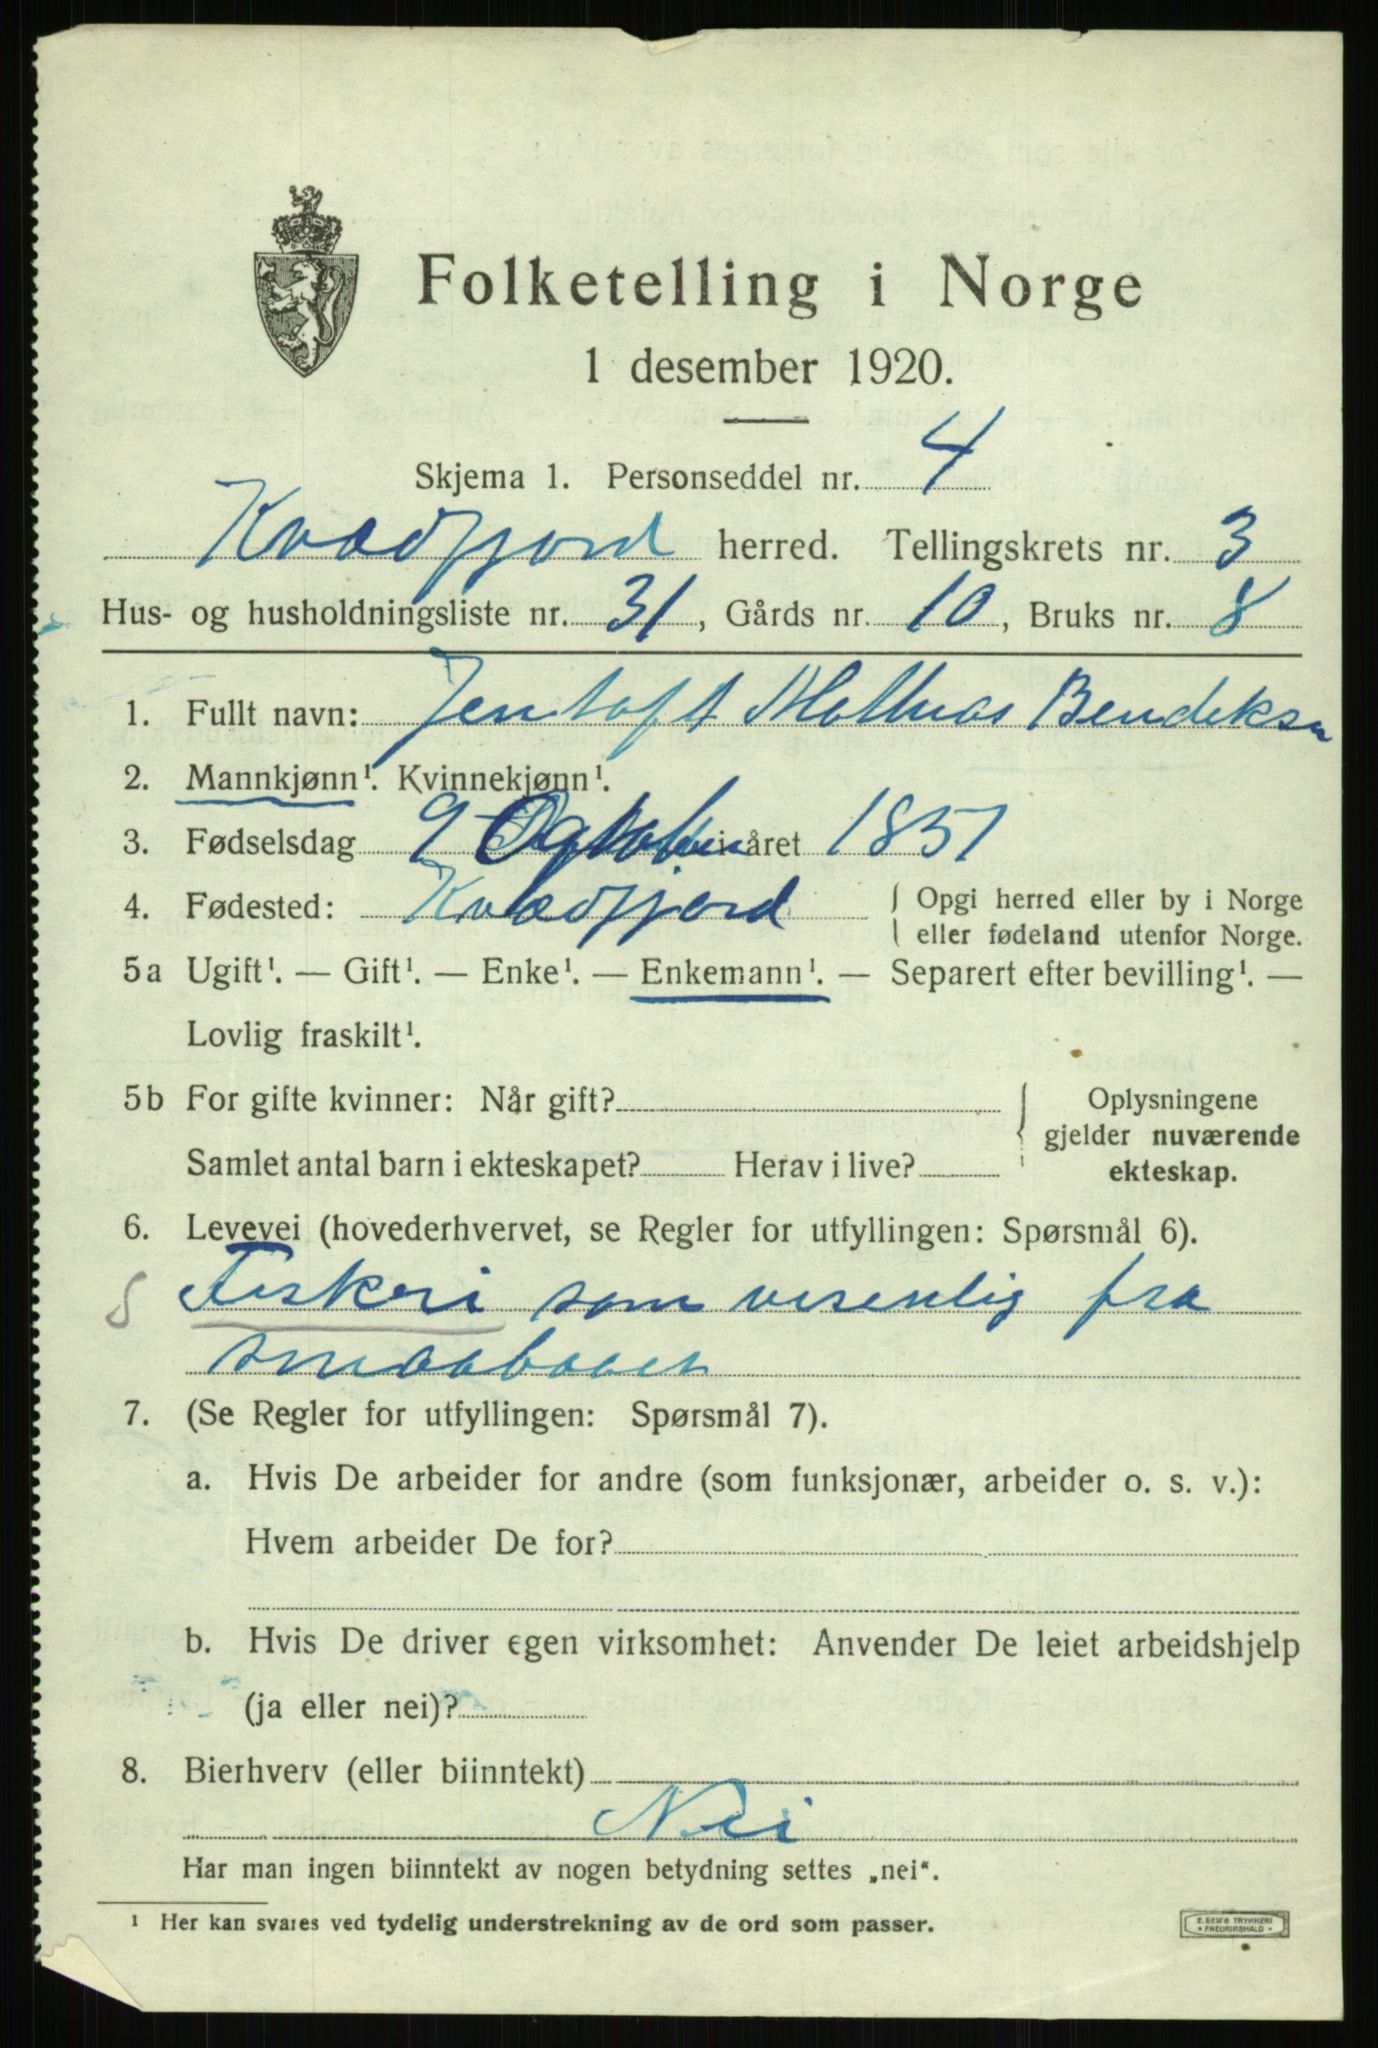 Folketelling i Norge
1 desember 1920.
Skjema 1. Personseddel nr. 4
Kvædfjord herred. Tellingskrets nr. 3
Hus- og husholdningsliste nr. 31, Gårds nr. 10, Bruks nr. 8
1. Fullt navn: Jentoft Mathias Bendeksn
2. Mannkjønn¹. Kvinnekjønn¹.
3. Fødselsdag 9 i året 1851
4. Fødested: Kvædfjord { Opgi herred eller by i Norge
eller fødeland utenfor Norge.
5a Ugift¹. — Gift¹. — Enke¹. — Enkemann¹. — Separert efter bevilling¹. —
Lovlig fraskilt¹.
5b For gifte kvinner: Når gift?
Samlet antal barn i ekteskapet? Herav i live?
Oplysningene
gjelder nuværende
ekteskap.
6. Levevei (hovederhvervet, se Regler for utfyllingen: Spørsmål 6).
Fiskeri som vesenlig fra
smaabaaer
7. (Se Regler for utfyllingen: Spørsmål 7).
a. Hvis De arbeider for andre (som funksjonær, arbeider o. s. v.):
Hvem arbeider De for?
b. Hvis De driver egen virksomhet: Anvender De leiet arbeidshjelp
(ja eller nei)?
8. Bierhverv (eller biinntekt)
Nei
Har man ingen biinntekt av nogen betydning settes „nei“.
¹ Her kan svares ved tydelig understrekning av de ord som passer.
E. SEM'S TRYKKERI
• FREDRIKSHALD •